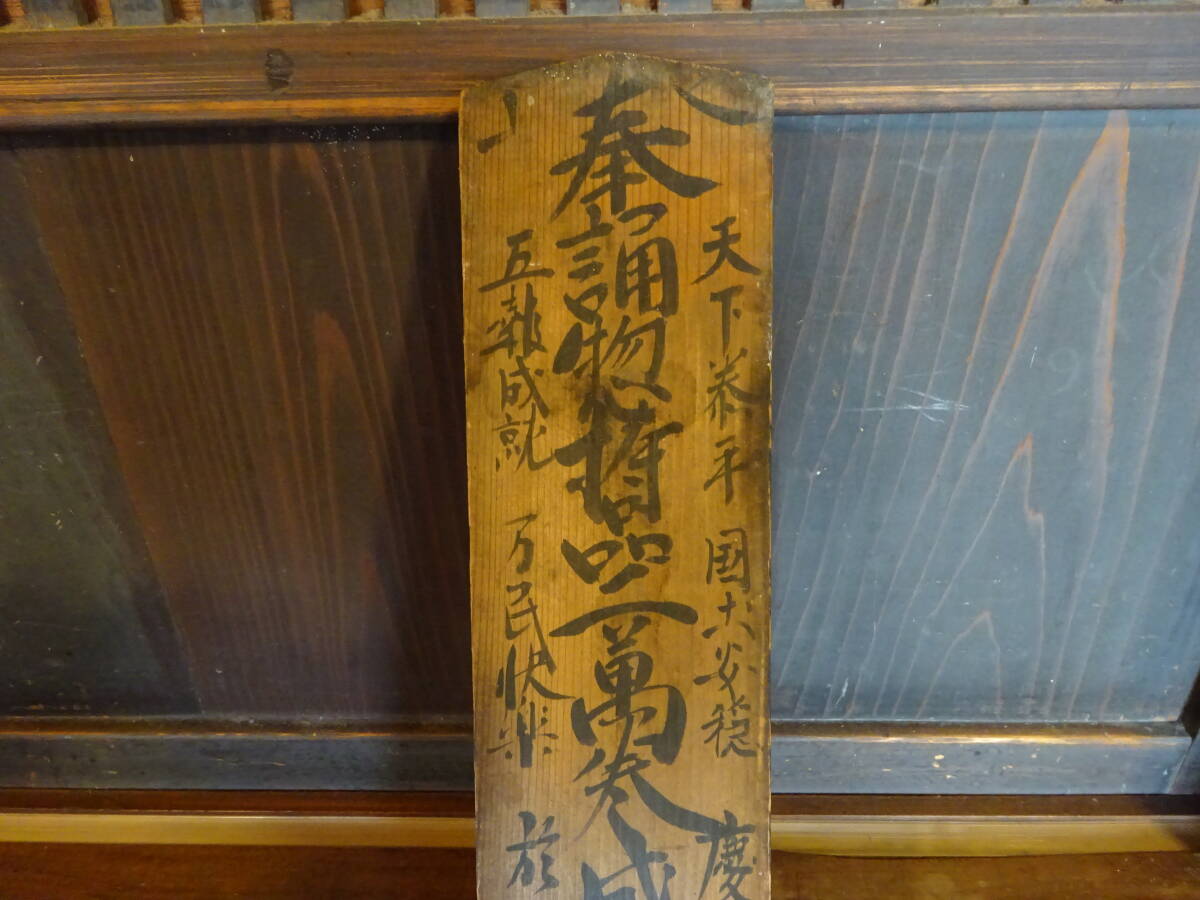 天下泰平 國土安穏 慶
奉誦惣品一萬巻成
五穀成就 万民快楽 於